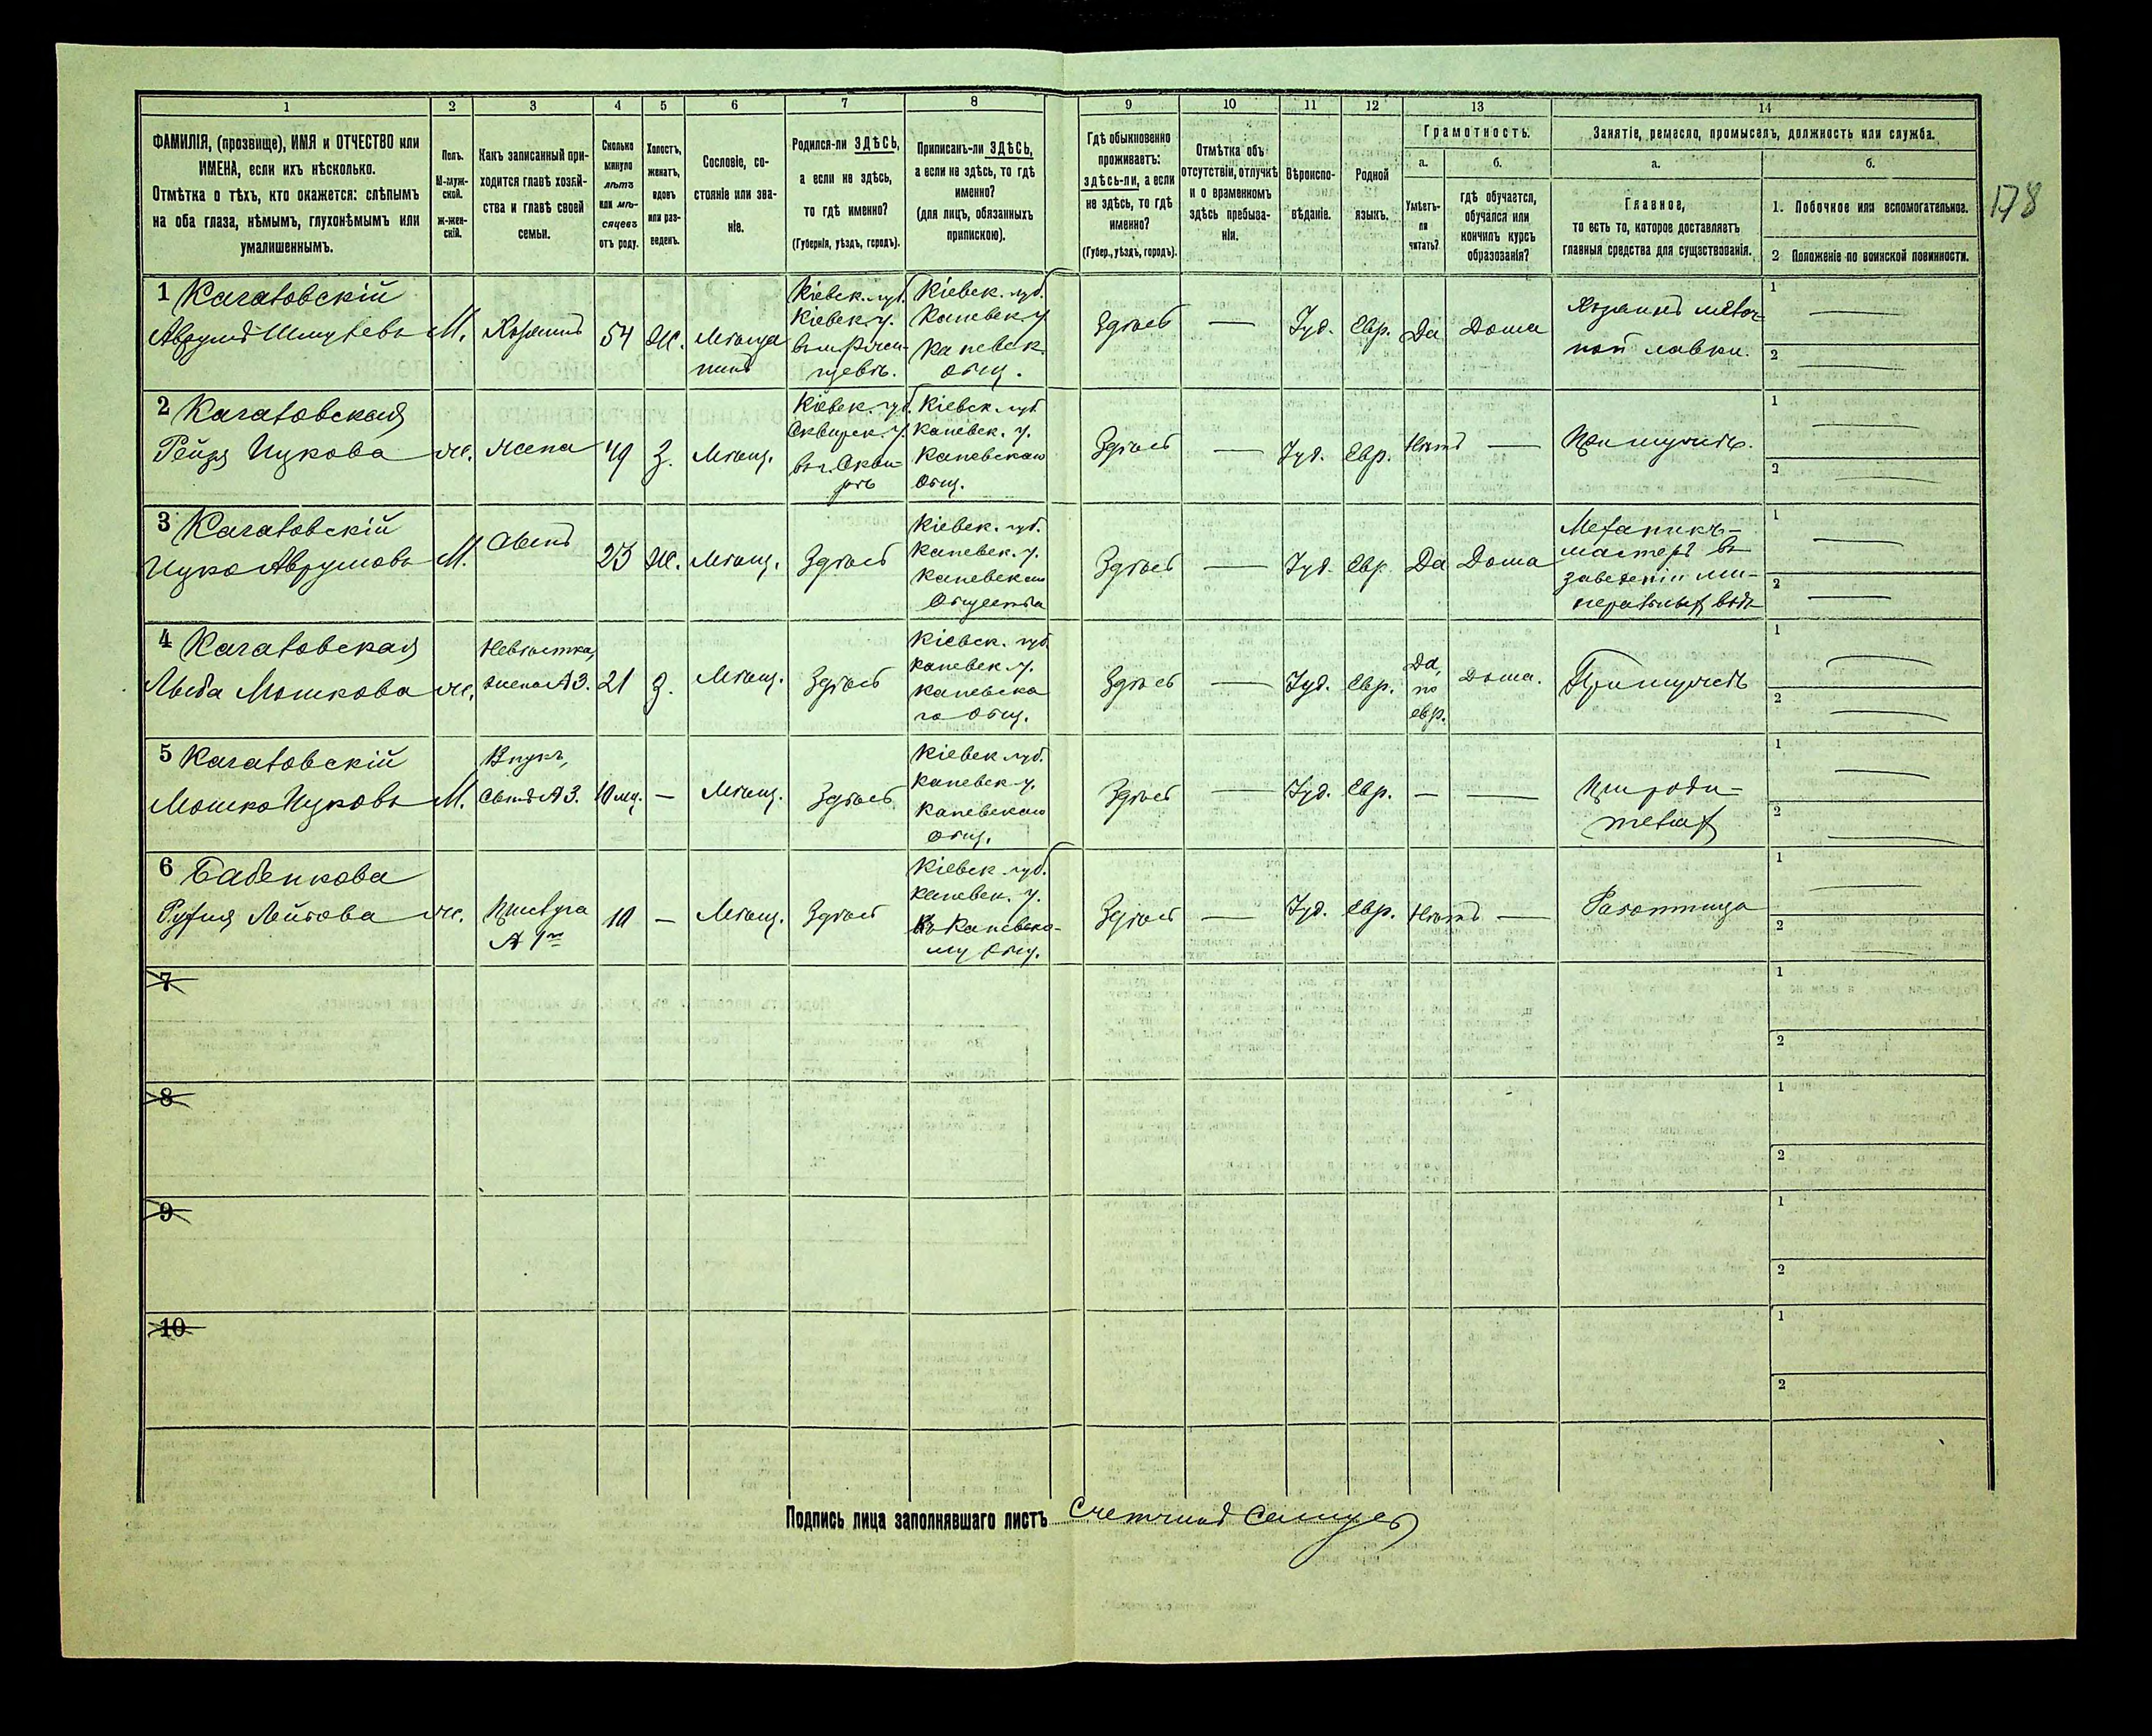 1 2 3 4 5 6 7 8 9 10 11 12 13 14
ФАМИЛІЯ, (прозвище), ИМЯ и ОТЧЕСТВО или
ИМЕНА, если ихъ нѣсколько.
Отмѣтка о тѣхъ, кто окажется: слѣпымъ
на оба глаза, нѣмымъ, глухонѣмымъ или
умалишеннымъ.
Полъ.
М-муж-
ской.
ж-жен-
скій.
Какъ записанный при-
ходится главѣ хозяй-
ства и главѣ своей
семьи.
Сколько
минуло
лѣтъ
или мѣ-
сяцевъ
отъ роду.
Холостъ,
женатъ,
вдовъ
или раз-
веденъ.
Сословіе, со-
стояніе или зва-
ніе.
Родился-ли ЗДѢСЬ,
а если не здѣсь,
то гдѣ именно?
(Губернія, уѣздъ, городъ).
Приписанъ-ли ЗДѢСЬ,
а если не здѣсь, то гдѣ
именно?
(для лицъ, обязанныхъ
припискою).
Гдѣ обыкновенно
проживаетъ:
здѣсь-ли, а если
не здѣсь, то гдѣ
именно?
(Губер., уѣздъ, городъ).
Отмѣтка объ
отсутствіи, отлучкѣ
и о временномъ
здѣсь пребыва-
ніи.
Вѣроиспо-
вѣданіе.
Родной
языкъ.
Грамотность.
а.
Умѣетъ-
ли
читать?
б.
гдѣ обучается,
обучался или
кончилъ курсъ
образованія?
Занятіе, ремесло, промыселъ, должность или служба.
а.
Главное,
то есть то, которое доставляетъ
главныя средства для существованія.
б.
1. Побочное или вспомогательное.
2 Положеніе по воинской повинности.
178
1 Кагаловскій
Аврумъ Шмулевъ
М.
Хозяинъ
54
Ж.
Мѣща
нинъ
Кіевск. губ.
Кіевск. у.
Кіевск. губ.
Каневск. у
Каневск.
общ.
Здѣсь
—
Іуд.
Евр.
Да
Дома
Хозяинъ мелоч
ной лавки.
1 —
2 —
2 Кагаловская
Рейзя Ицкова
ж.
жена
49
З.
Мѣщ.
Кіевск. губ.
Сквирск. у.
въ г. Скви-
рѣ
Кіевск. губ
Каневск. у.
Каневскаго
Общ.
Здѣсь
—
Іуд.
Евр.
Нѣтъ
—
При мужѣ.
1 —
2 —
3 Кагаловскій
Ицко Аврумовъ
М.
Сынъ
23
Ж.
Мѣщ.
Здѣсь
Кіевск. губ.
Каневск. у.
Каневскаго
Общества
Здѣсь
—
Іуд.
Евр.
Да
Дома
Механикъ-
мастеръ въ
заведеніи ми-
неральныхъ водъ
1 —
2 —
4 Кагаловская
Мошкова
ж.
Невѣстка,
жена № 3.
21
З.
Мѣщ.
Здѣсь
Кіевск. губ.
Каневск. у.
Каневска
го Общ.
Здѣсь
—
Іуд.
Евр.
Да,
по
евр.
Дома.
При мужѣ
1 —
2 —
5 Кагаловскій
Мошко Ицковъ
М.
Внукъ,
Сынъ № 3.
10 мц.
—
Мѣщ.
Здѣсь
Кіевск. губ.
Каневск. у.
Каневскаго
общ.
Здѣсь
—
Іуд.
Евр.
—
—
При роди-
теляхъ
1 —
2 —
6 Бабенкова
Лейбова
ж.
Прислуга
№ 1го
10
—
Мѣщ.
Здѣсь
Кіевск. губ.
Каневск. у.
Къ Каневско-
му Общ.
Здѣсь
—
Іуд.
Евр.
Нѣтъ
—
Работница
1 —
2 —
7
1
2
8
1
2
9
1
2
10
1
2
Подпись лица заполнявшаго листъ Счетчикъ